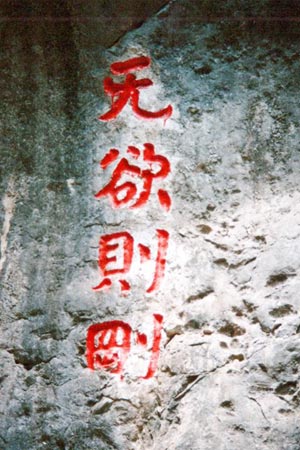 无欲則剛